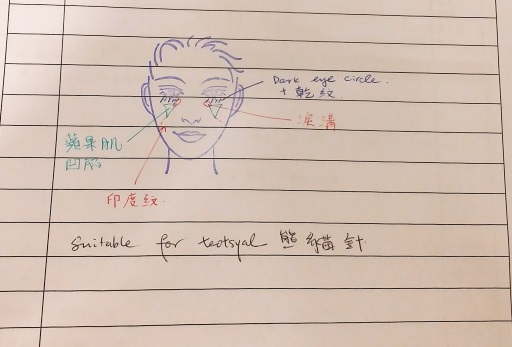 Dark eye circle.
+ 乾紋
淚溝
蘋果肌
凹陷
印度紋
Suitable for teotsyal 熊貓針.